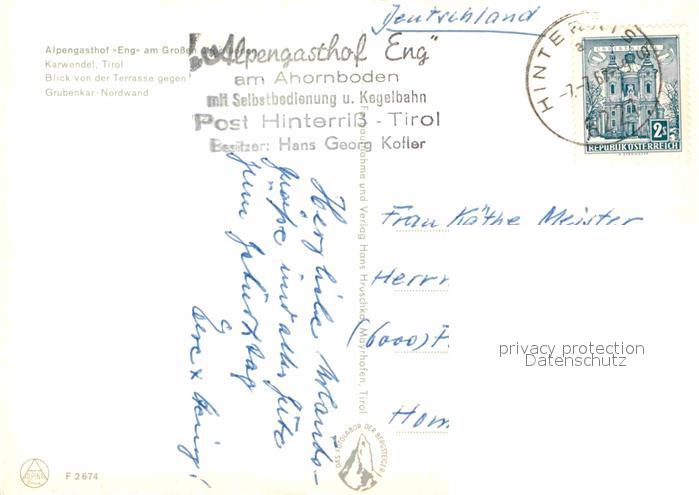 Alpengasthof »Eng« am Großen
Karwendel, Tirol
Blick von der Terrasse gegen
Grubenkar-Nordwand
"Alpengasthof Eng"
am Ahornboden
mit Selbstbedienung u. Kegelbahn
Post Hinterriß - Tirol
Besitzer: Hans Georg Kofler
Deutschland
HINTERRISS
-7.-7.67
2S
REPUBLIK ÖSTERREICH
Herzliche Urlaubs-
grüße und alles Gute
zum Geburtstag
Fotoaufnahme und Verlag Hans Hruschka, Mayrhofen, Tirol
Frau Käthe Meister
Herrn
(6000) F
Hom
privacy protection
Datenschutz
DAS FOTOLABOR DER BERGSTEIGER
F 2674